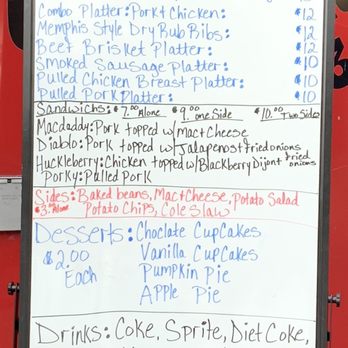 Combo Platter: Pork + Chicken: $12
Memphis Style Dry Rub Ribs: $12
Beef Brisket Platter: $12
Smoked Sausage Platter: $10
Pulled Chicken Breast Platter: $10
Pulled Pork Platter: $10
Sandwichs: $7.00 Alone $9.00 one Side $10.00 Two Sides
Macdaddy: Pork topped w/ mac+Cheese
Diablo: Pork topped w/ Jalapenos+ friedonions
Huckleberry: Chicken topped w/ Blackberry Dijon+ fried onions
Porky: Pulled Pork
Sides: Baked beans, Mac+Cheese, Potato Salad
$3.00 Alone Potato Chips, Cole Slaw
Desserts: Choclate CupCakes
$2.00 Vanilla CupCakes
Each Pumpkin Pie
Apple Pie
Drinks: Coke, Sprite, Diet Coke,